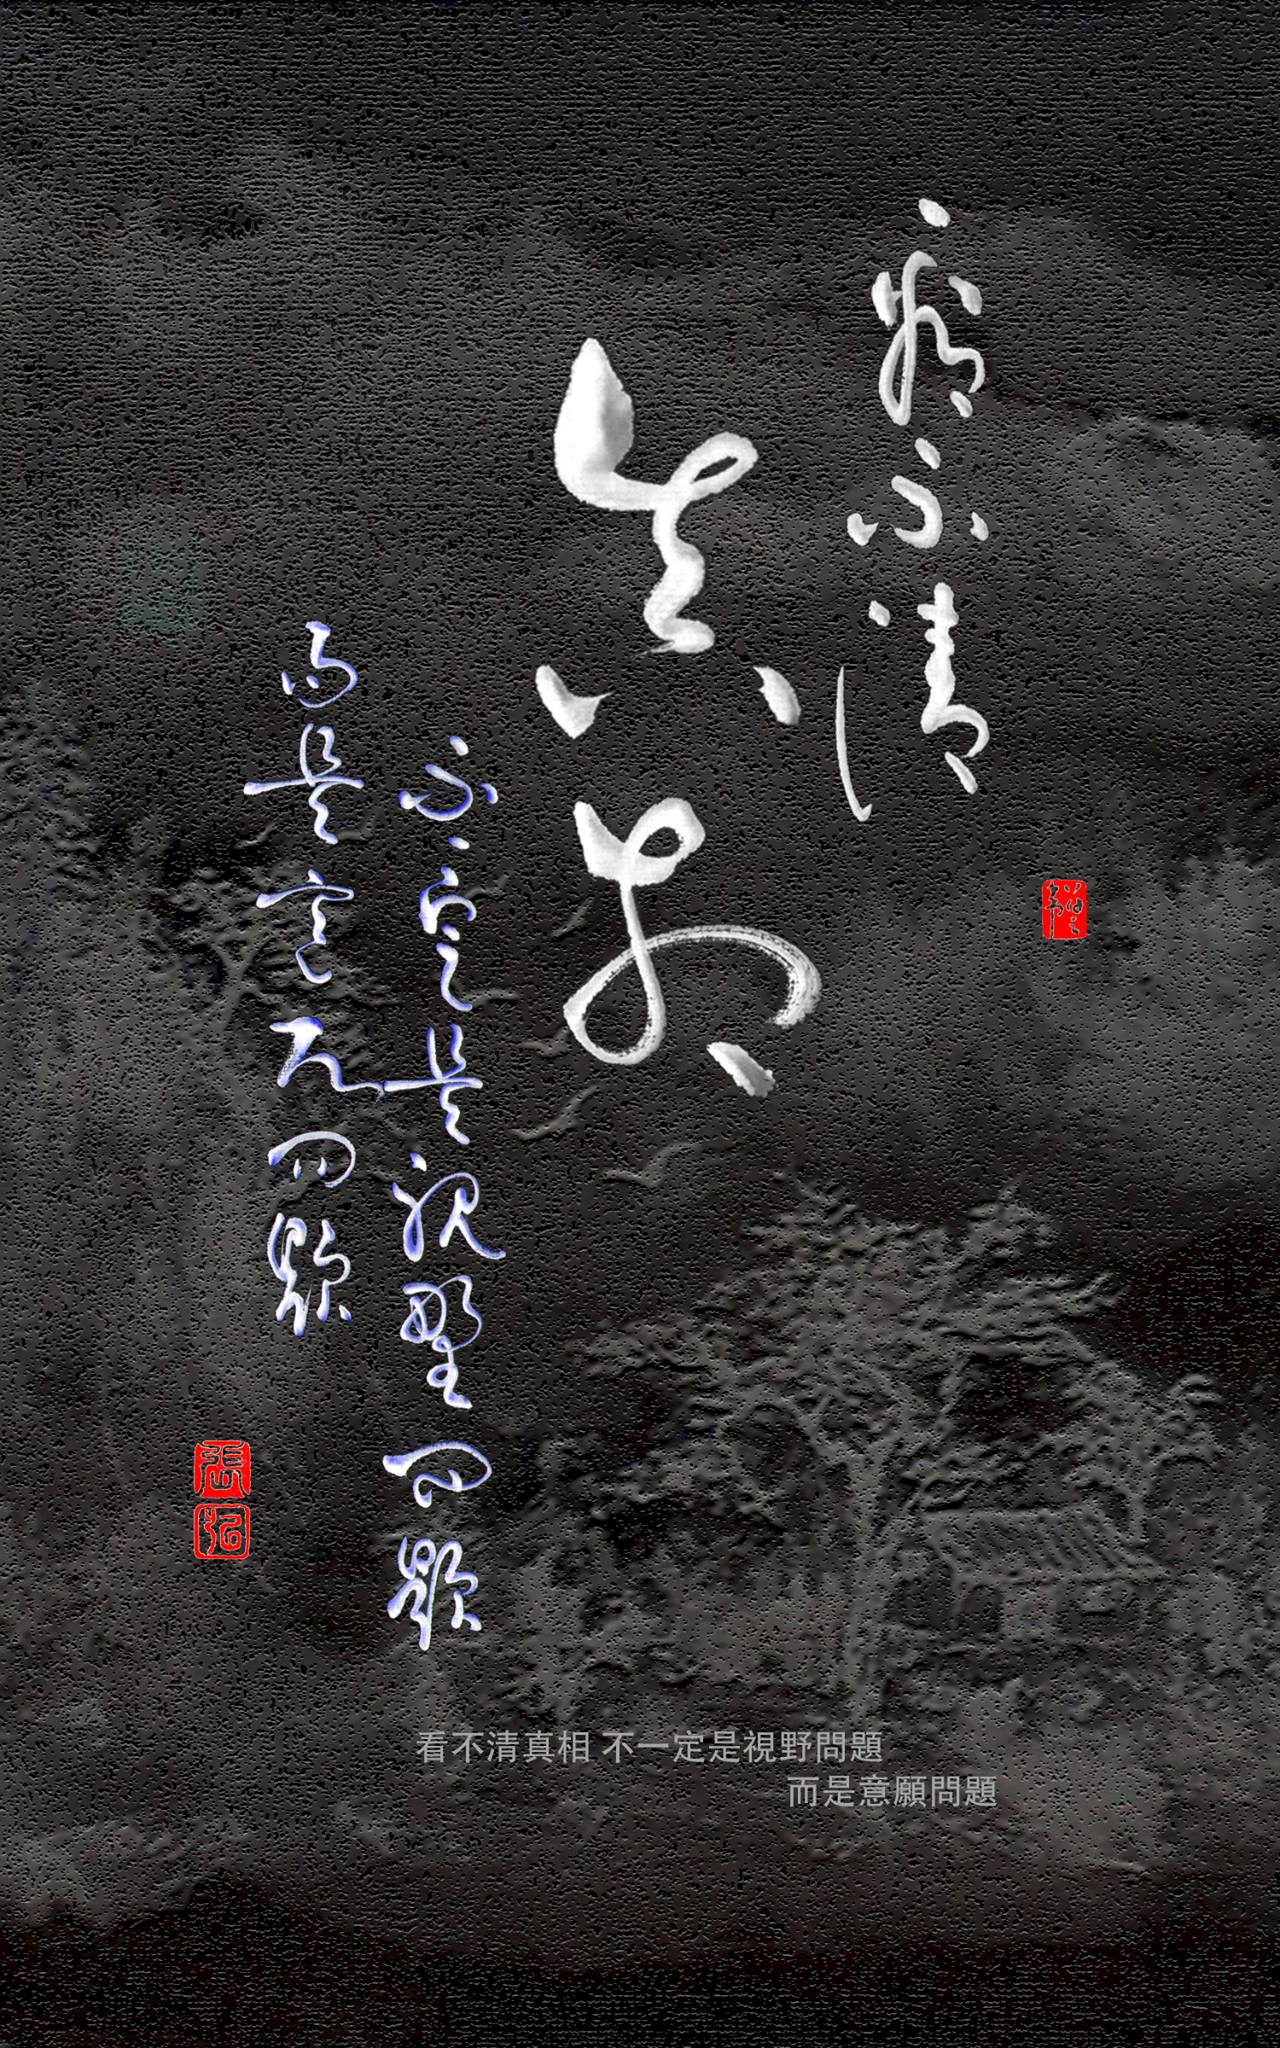 看不清
真相
不一定是視野問題
而是意願問題
張弘
看不清真相 不一定是視野問題
而是意願問題